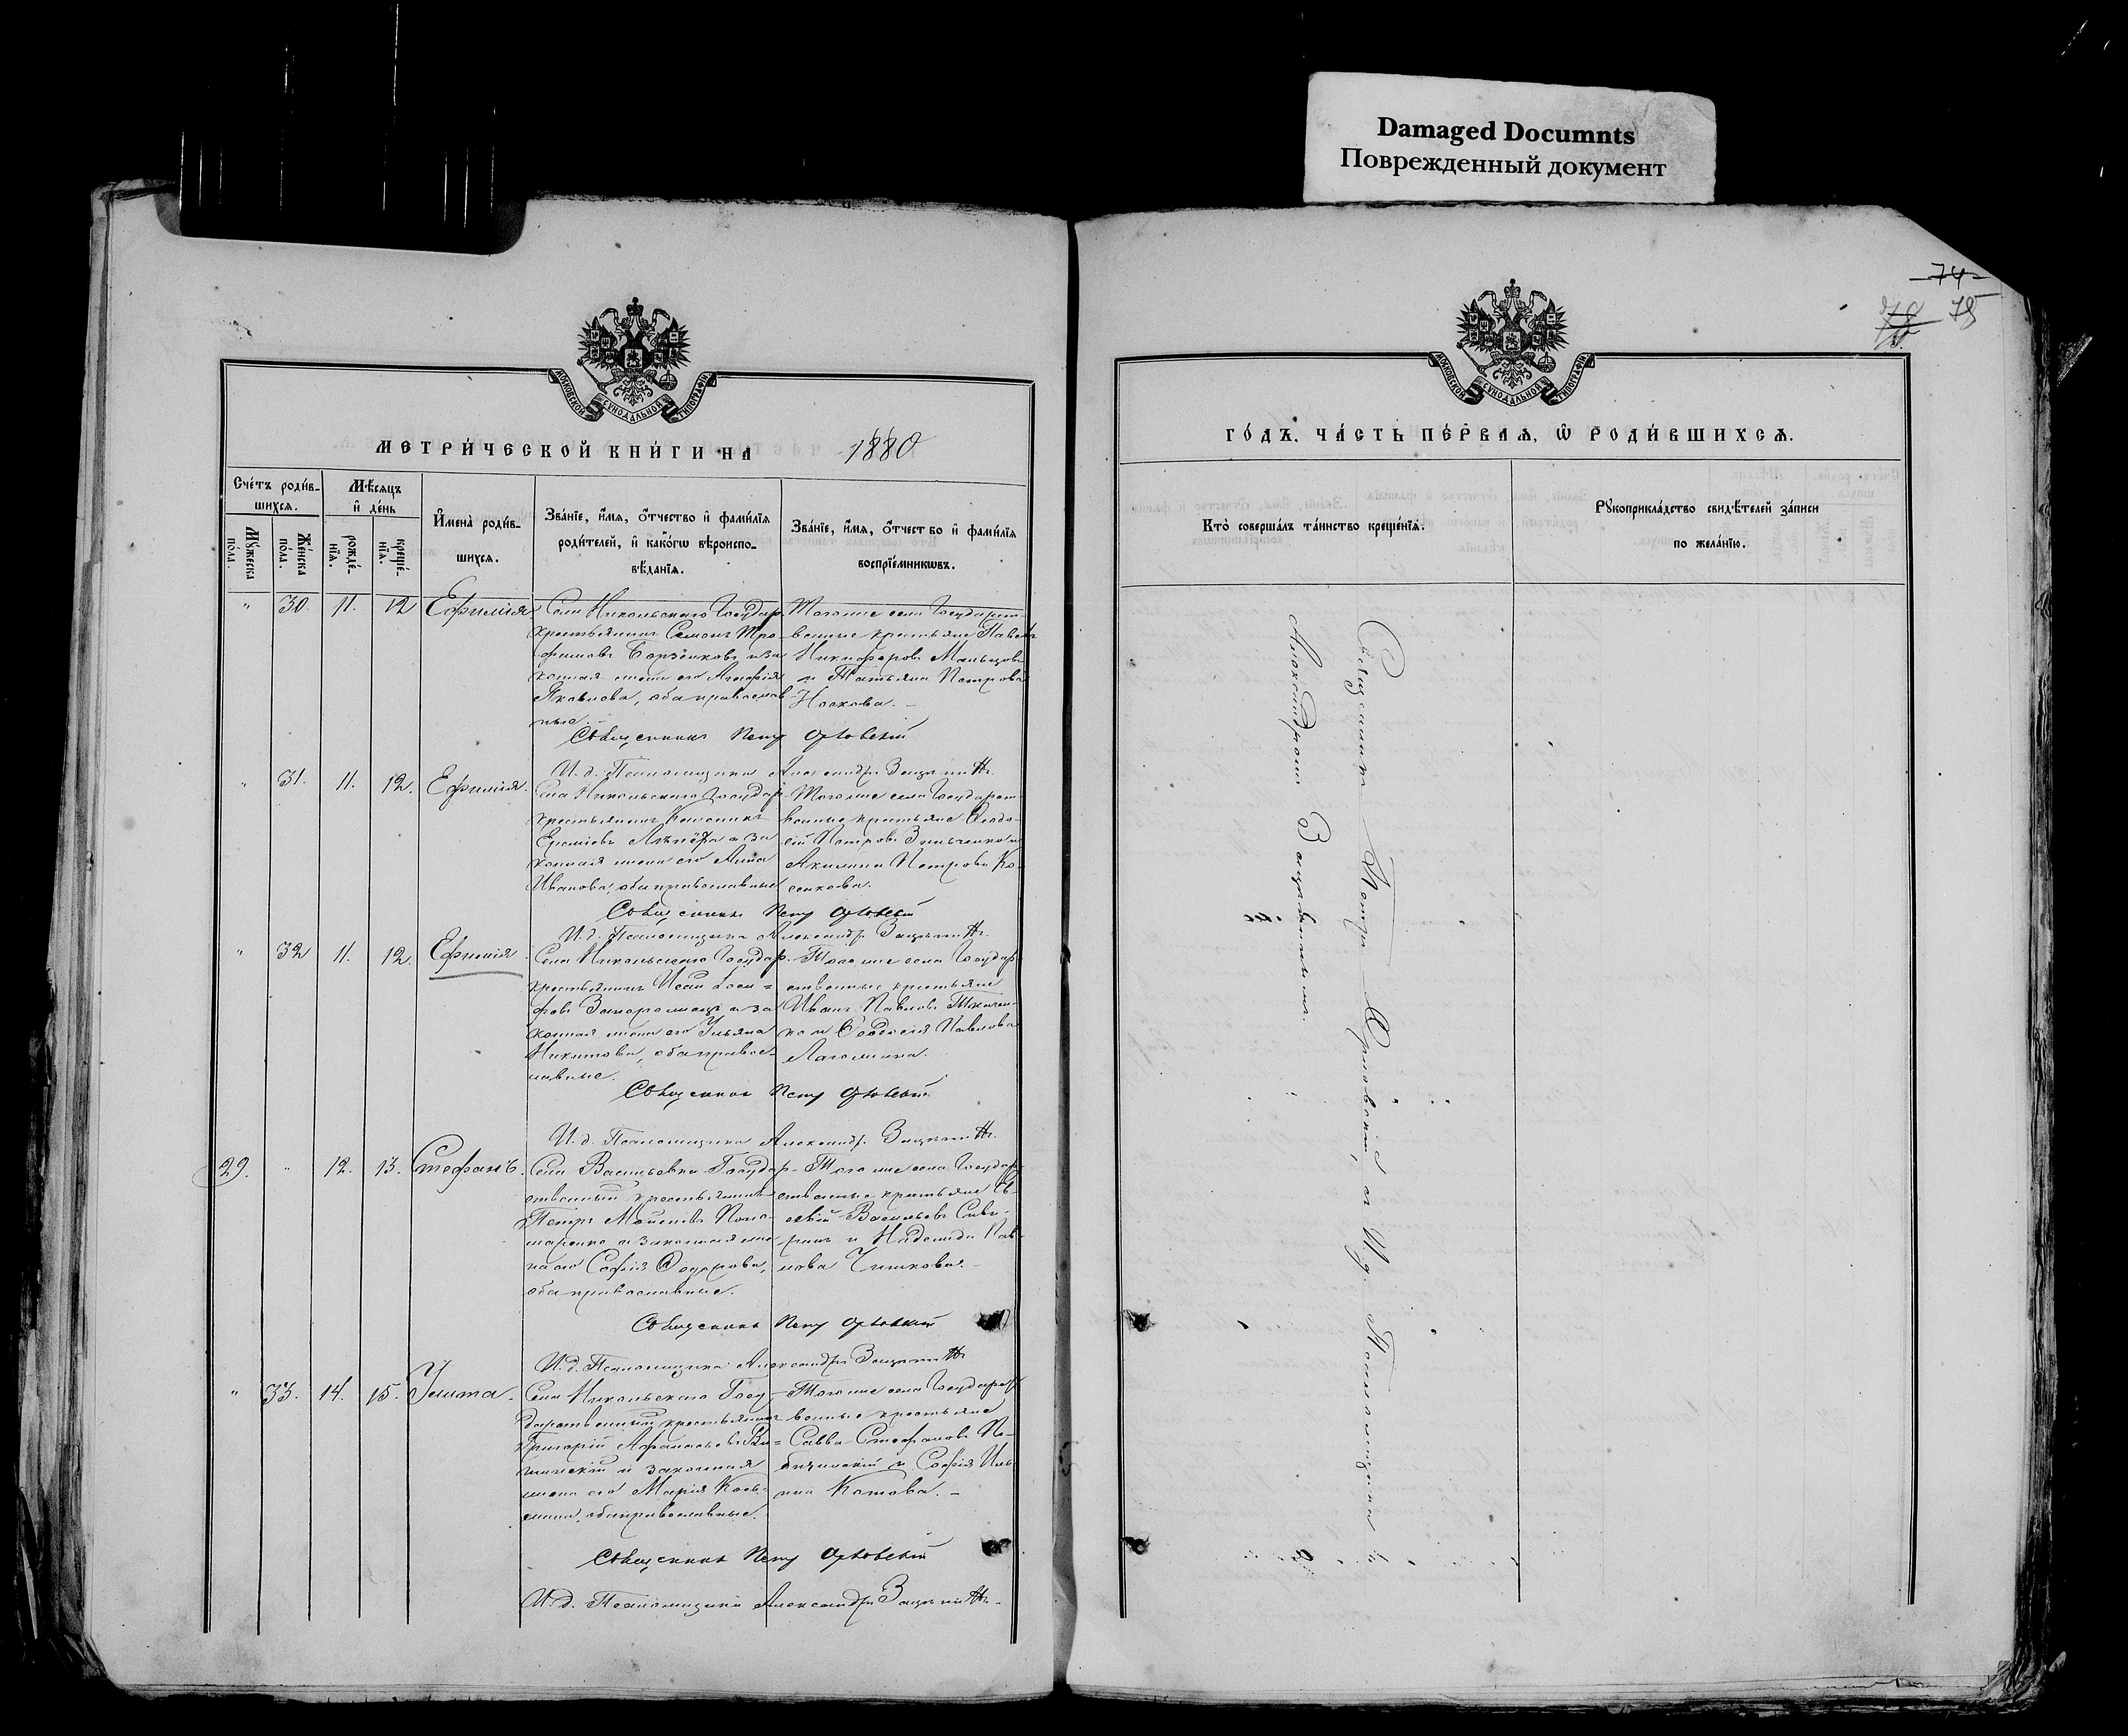 Damaged Documnts
Поврежденный документ
74
78
МОСКОВСКОЙ СѴНОДАЛЬНОЙ ТИПОГРАФІИ
МЕТРИ́ЧЕСКОЙ КНИ́ГИ НА 1880
Сче́тъ роди́в-
шихсѧ.
Мѣ́сѧцъ
и҆ де́нь
Мꙋ́жеска по́ла.
Же́нска по́ла.
рожде́-нїѧ.
креще́-нїѧ.
И҆мена̀ роди́в-
шихсѧ.
Зва́нїе, и҆́мѧ, ѻ҆́тчество и҆ фами́лїѧ
роди́телей, и҆ како́гѡ вѣроиспо-
вѣ́данїѧ.
Зва́нїе, и҆́мѧ, ѻ҆́тчество и҆ фами́лїѧ
воспрїе́мникѡвъ.
" 30. 11. 12 Ефимія
Села Никольскаго Государ
крестьянинъ Семенъ Тро-
фимовъ и за
конная жена его Агафія
Яковлева, оба православ
ные.
Тогоже села Государст
венные крестьяне Павелъ
Никифоровъ Мальцовъ
и Татьяна Петрова
Носкова.
Священникъ Петръ Орловскій
И. д. Псаломщика Александръ
" 31. 11. 12. Ефимія.
Села Никольскаго Государ
крестьянинъ
Еремѣевъ и за
конная жена его Анна
Иванова, оба православные
Тогоже села Государст
венные крестьяне Ѳеодо-
сій Петровъ и
Акилина Петрова Ко-
сенкова.
Священникъ Петръ Орловскій
И. д. Псаломщика Александръ
" 32 11. 12. Ефимія.
Села Никольскаго Государ-
крестьянинъ Исай Іоси=
фовъ Запорожецъ и за
конная жена его Ульяна
Никитова, оба правос-
лавные.
Тогоже села Государ
ственные крестьяне
Иванъ Павловъ
ко и Ѳеодосія Павлова
Священникъ Петръ Орловскій
И. д. Псаломщика Александръ
29. " 12. 13. Стефанъ.
Села Васильевки Государ-
ственный крестьянинъ
Петръ Моисеевъ Поно-
маренко и законная же
на его Софія Ѳедорова,
оба православные.
Тогоже села Государ
ственные крестьяне Ев-
сѣвій Васильевъ
и Надежда Пав-
лова Чижкова.
Священникъ Петръ Орловскій
И. д. Псаломщика Александръ
" 33. 14. 15. Улита.
Села Никольскаго Госу-
дарственный крестьянинъ
Григорій Афанасьевъ
и законная
жена его Марія Козь-
мина, оба православные.
Тогоже села Государст
венные крестьяне
Савва Стефановъ
и Софія Иль
ина Котова.
Священникъ Петръ Орловскій
И. д. Псаломщика Александръ
МОСКОВСКОЙ СѴНОДАЛЬНОЙ ТИПОГРАФІИ
ГО́ДЪ, ЧА́СТЬ ПЕ́РВАѦ, Ѡ҆ РОДИ́ВШИХСѦ.
Кто̀ соверша́лъ та́инство креще́нїѧ.
Рꙋкоприкла́дство свидѣ́телей за́писи
по жела́нїю.
Священникъ Петръ Орловскій, съ И. д. Псаломщика
Александромъ